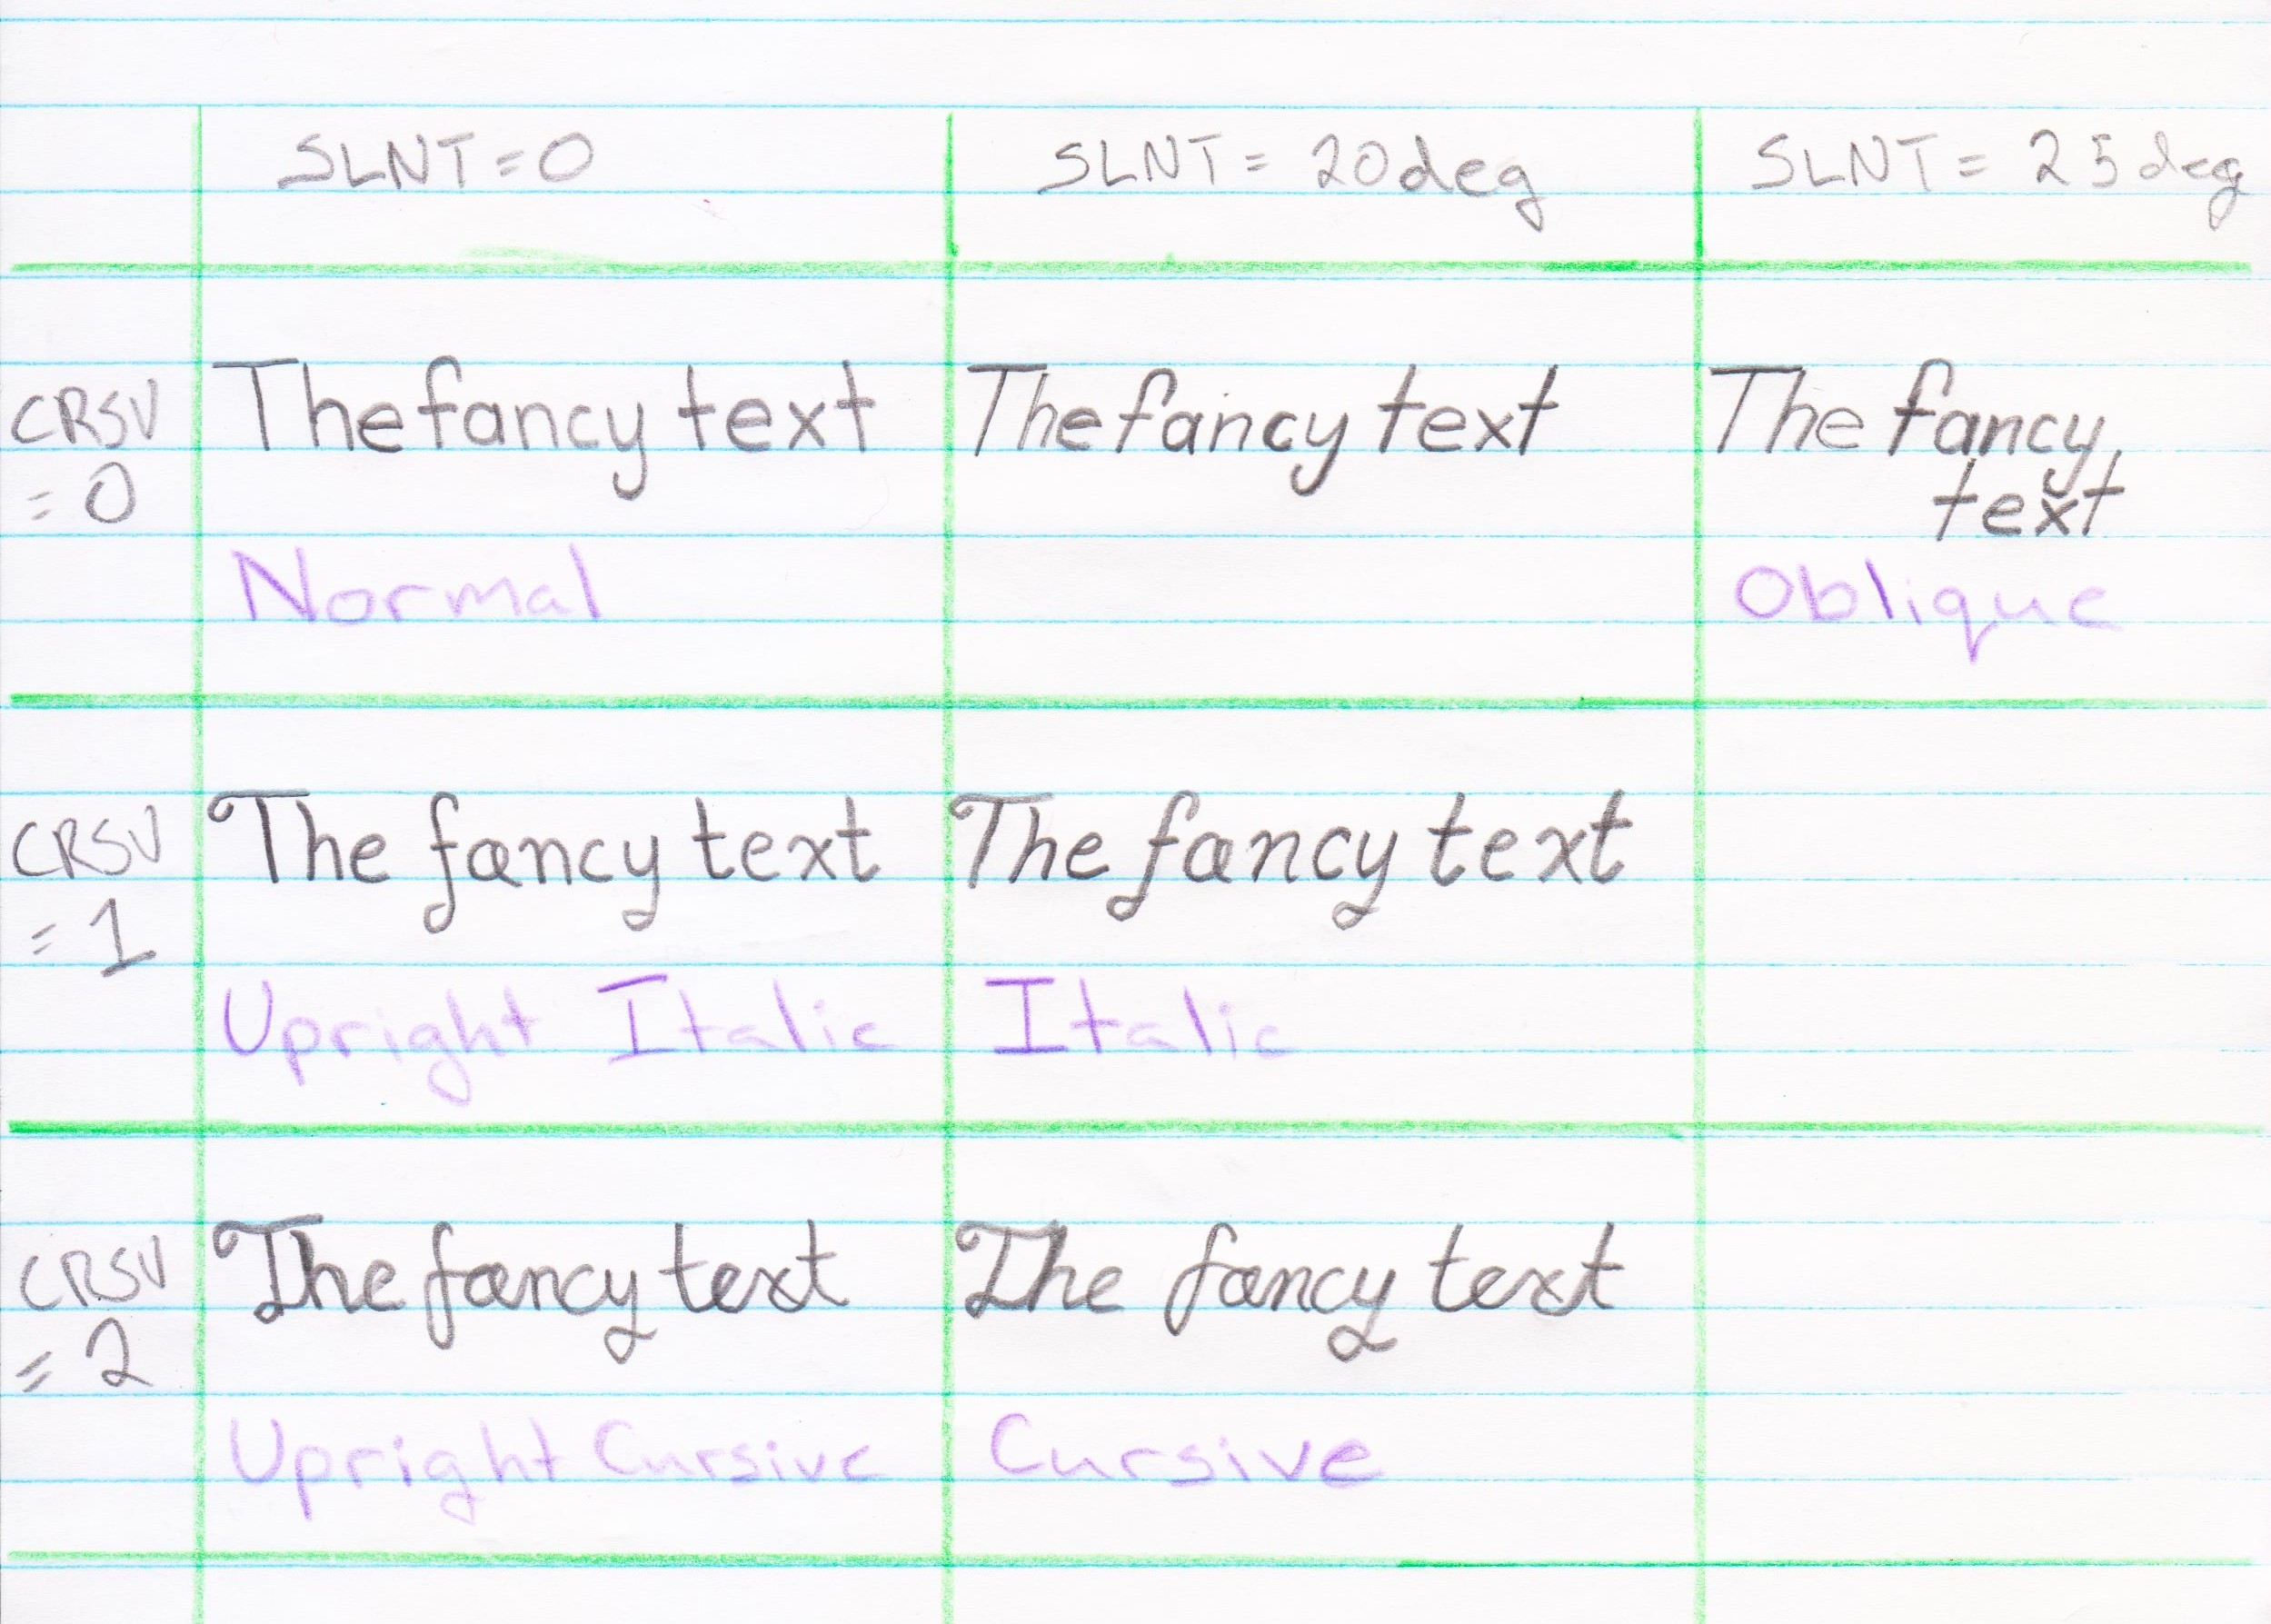 SLNT = 0 SLNT = 20deg SLNT = 25deg
CRSV = 0 The fancy text The fancy text The fancy text
Normal Oblique
CRSV = 1 The fancy text The fancy text
Upright Italic Italic
CRSV = 2 The fancy text The fancy text
Upright Cursive Cursive